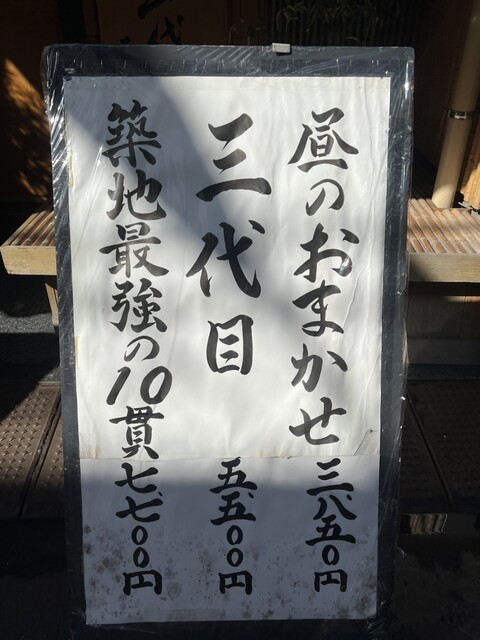 昼のおまかせ 三、八五〇円
三代目 五、五〇〇円
築地最強の10貫 七、七〇〇円